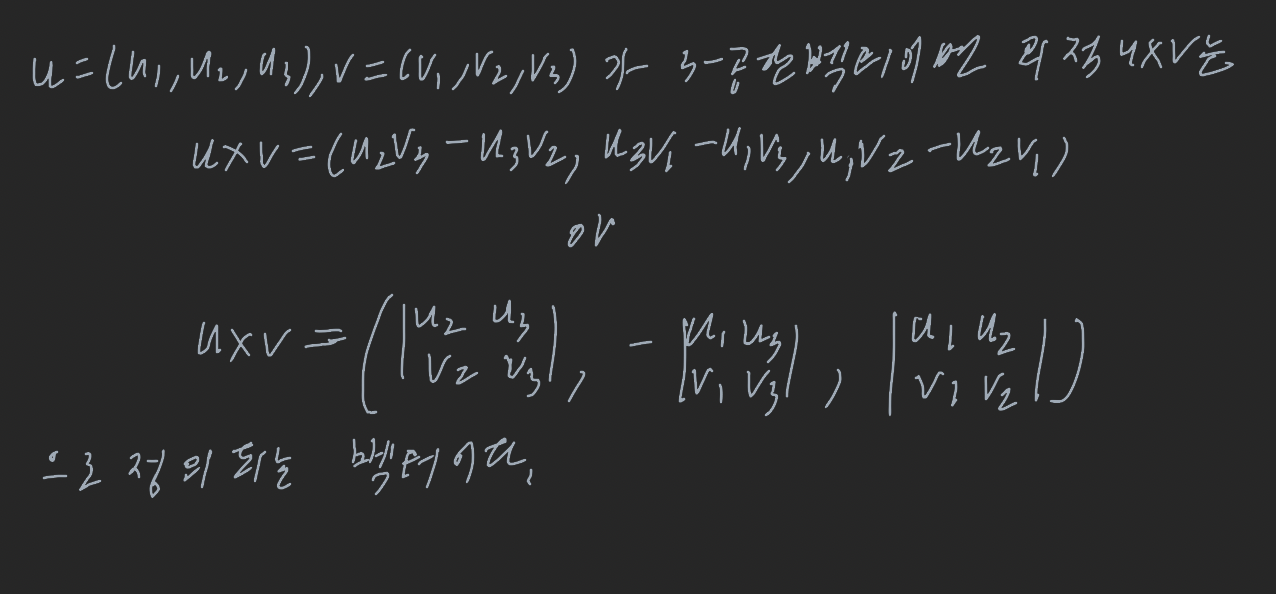 u=(u₁,u₂,u₃), v=(v₁,v₂,v₃) 가 3-공간벡터이면 곽적 u×v는
u×v=(u₂v₃-u₃v₂, u₃v₁-u₁v₃, u₁v₂-u₂v₁)
or
u×v=(|u₂ u₃|, -|u₁ u₃|, |u₁ u₂|)
|v₂ v₃| |v₁ v₃| |v₁ v₂|
으로 정의 되는 벡터이다.